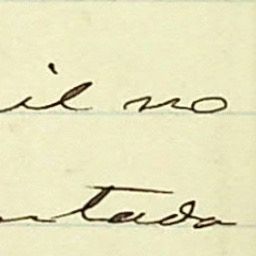 il no
ntada